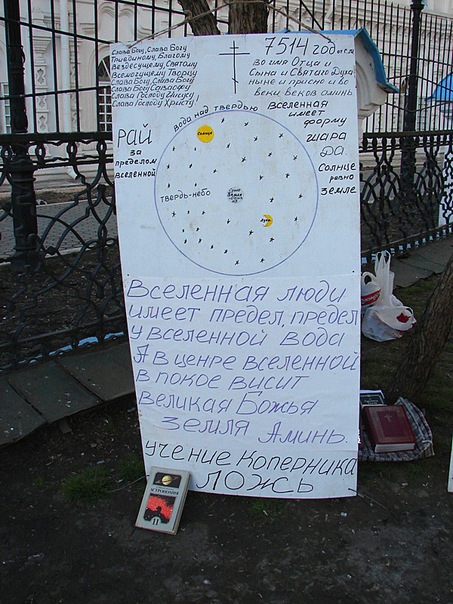 Слава Отцу, Слава Богу
Триединому, Благому
Вездесущему Святому
Всемогущему Творцу
Слава Богу, Слава Богу
Слава Богу Саваофу
Слава Господу Иисусу
Слава Господу Христу
7514 год от с.м
Во имя Отца и
Сына и Святаго Духа
ныне и присно и во
веки веков аминь
Вселенная
имеет
форму
шара
да.
Солнце
равно
Земле
РАЙ
за
пределом
вселенной
Вода над твердью
Солнце
Твердь-небо
Луна
Вселенная люди
имеет предел, предел
у вселенной вода
А в ценре вселенной
в покое висит
великая Божья
земля Аминь.
учение Коперника
ложсь
11